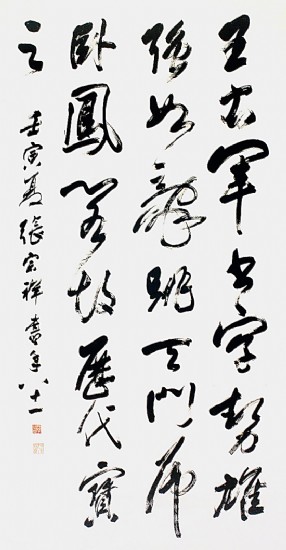 王右軍書字勢雄
強如龍跳天門虎
臥鳳閣故歷代寶
之
壬寅夏張宗祥書年八十一